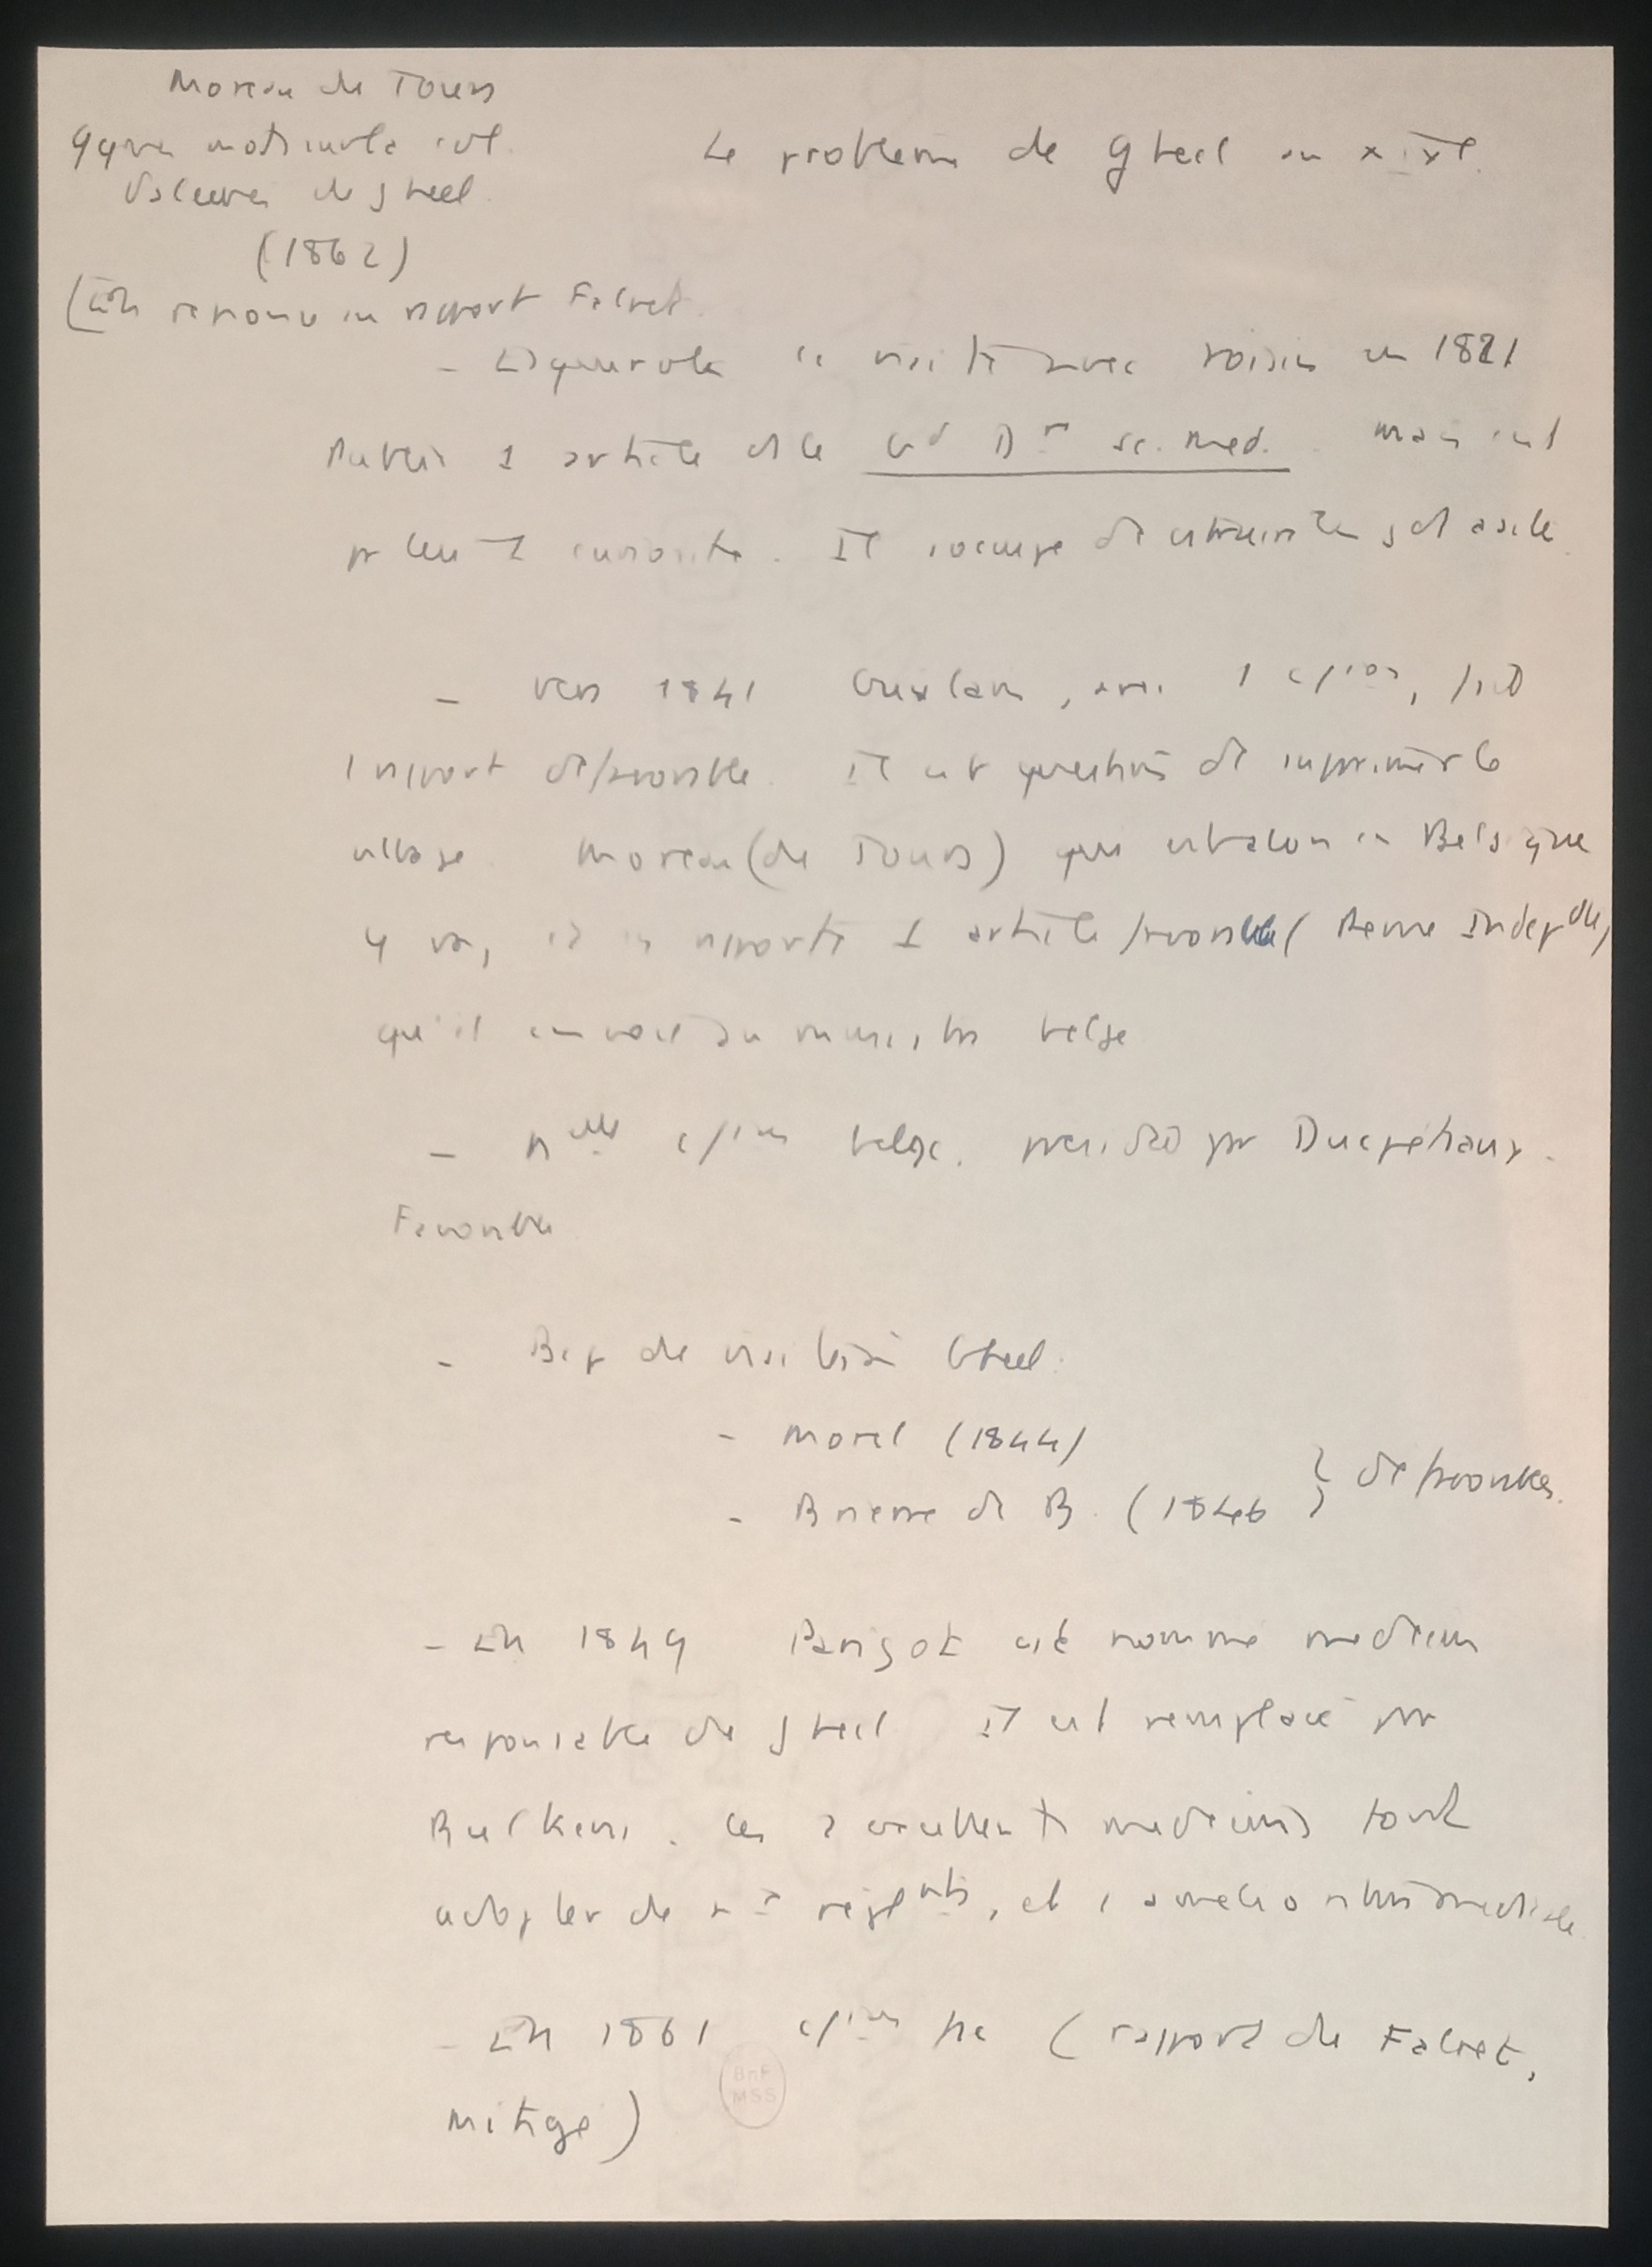 Moreau de Tours
qques mots sur la col.
de Gheel
(1862)
(En réponse au rapport Falret.
Le problème de Gheel au XIXe.
- Esquirol la visite avec Voisin en 1821
Publie 1 article ds le Gd Dre sc. med. Mais c'est
pr lui 1 curiosité. Il s'occupe de construire gd asile.
- vers 1841 Guislain, avec 1 c/ion, fait
1 rapport défavorable. Il est question de supprimer le
village. Moreau (de Tours) qui est alors en Belgique
y va, et en rapporte 1 article favorable (Revue Indépdte)
qu'il envoie au ministre belge
- Nlle c/ion belge. présidée pr Ducpétiaux.
Favorable
- Bcp de visites à Gheel.
- Morel (1844)
- Brierre de B. (1846 } défavorables.
- En 1849 Parigot est nommé médecin
responsable de Gheel. Il est remplacé par
Bulkens. Ces 2 excellents médecins font
adopter de nx règlmts, et 1 amélioration médicale.
- En 1861 c/ion frse (rapport de Falret,
mitigé)
BnF
MSS